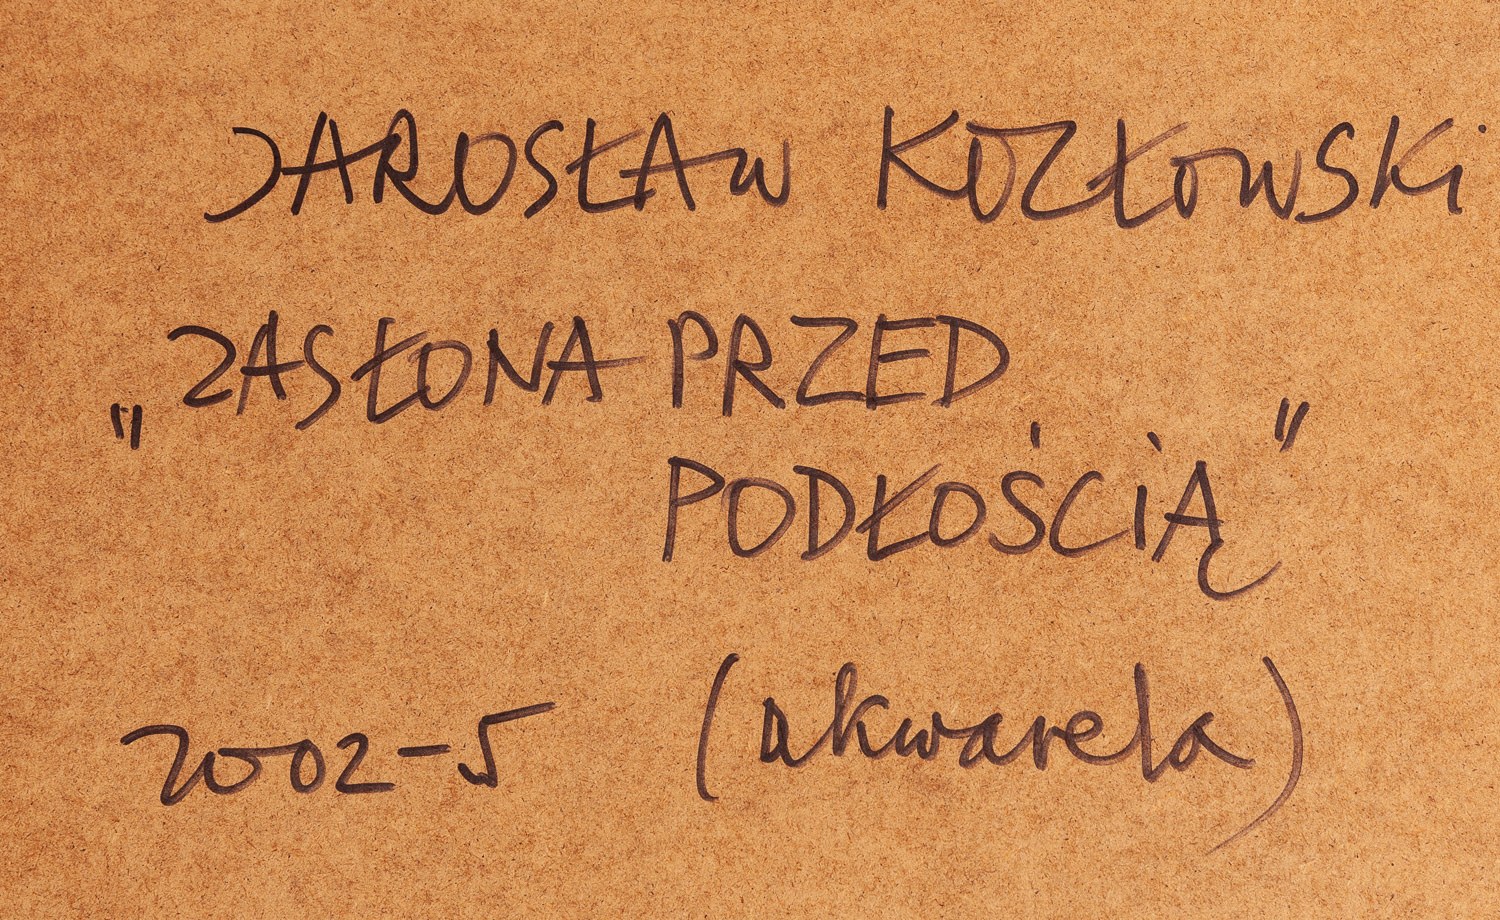 JAROSŁAW KOZŁOWSKi
"ZASŁONA PRZED
PODŁOŚCIĄ"
2002-5 (akwarela)